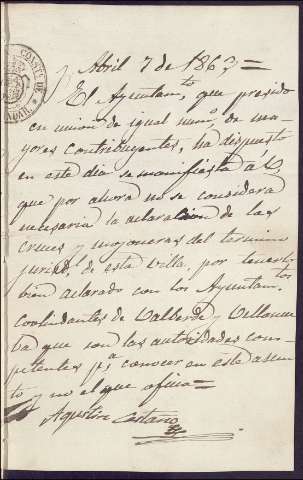 Abril 7 de 1863 =
El Ayuntam.to que presido
en union de igual num.o de ma-
yores contribuyentes, ha dispuesto
en este dia se manifiesta á V.
que por ahora no se considera
necesaria la aclaracion de las
cruces y mojoneras del termino
de esta villa, por tenerlo
bien aclarado con los Ayuntam.tos
de Valverde y Villanue
va que son las autoridades com-
petentes p.a conocer en este asun
to y no el que oficia =
Agustin Castaño
CONSTL DE